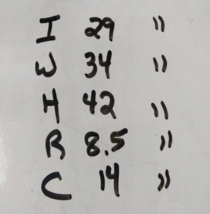 I 29 "
W 34 "
H 42 "
R 8.5 "
C 14 "